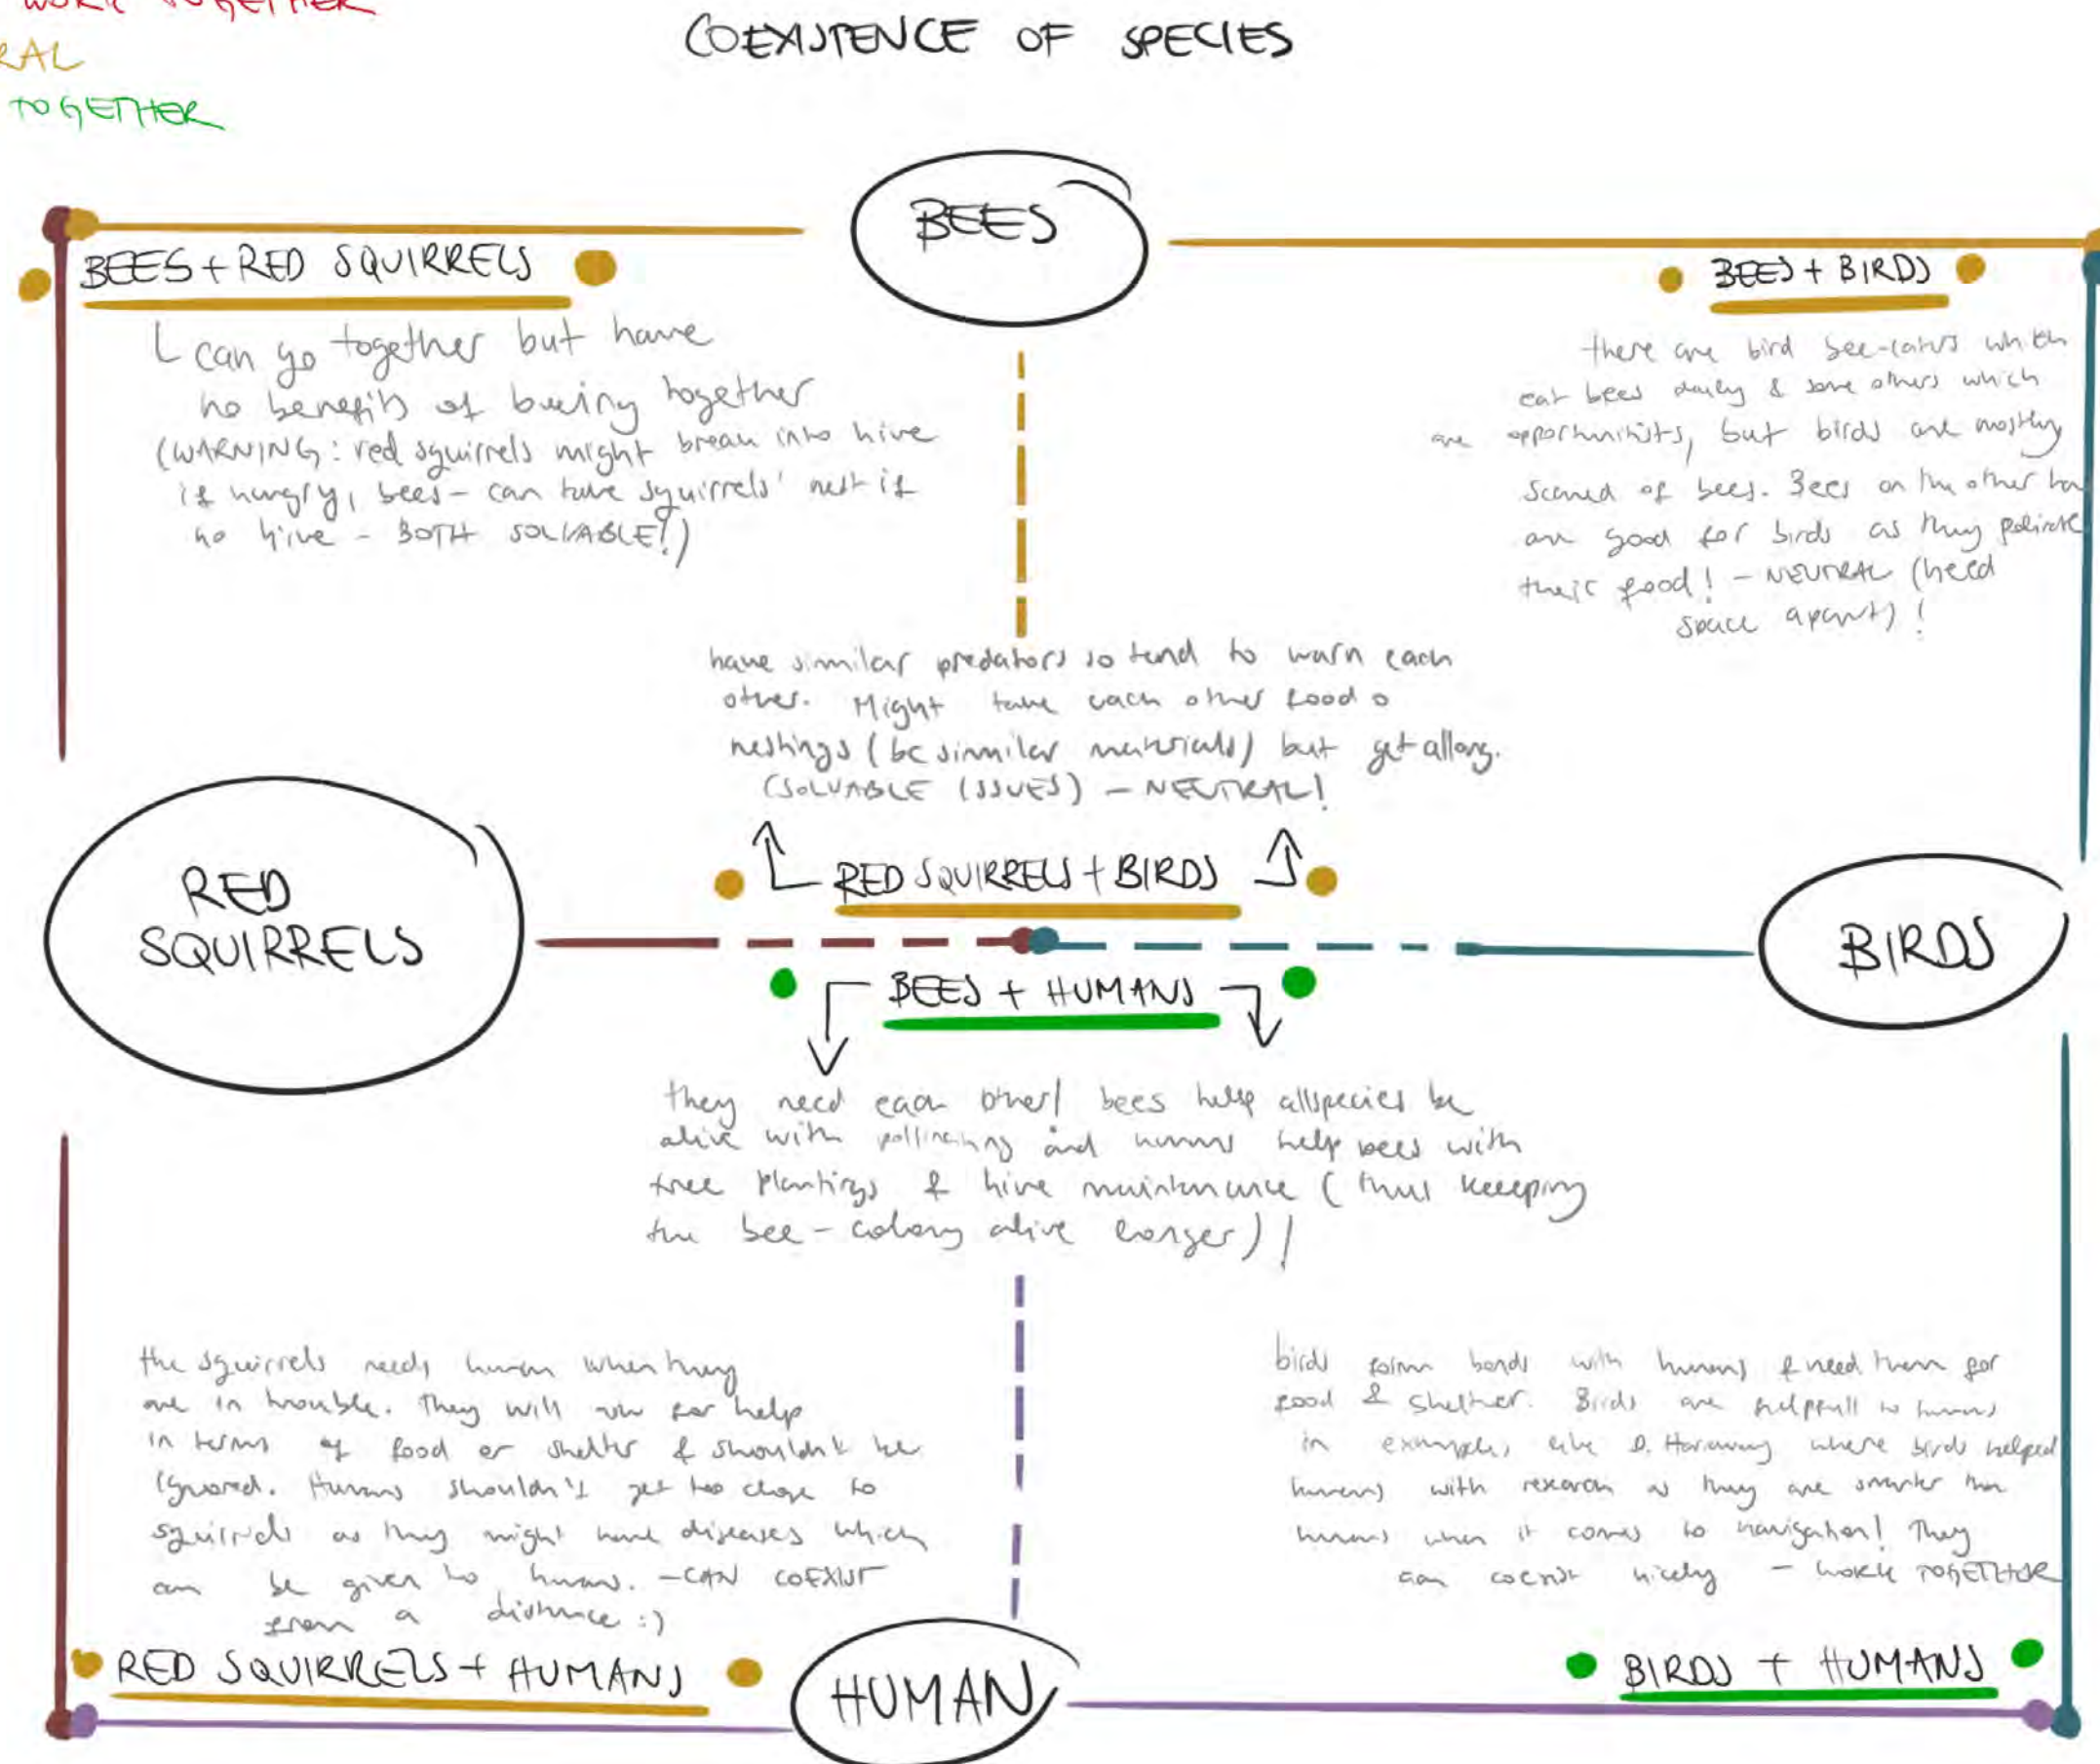 WORK TOGETHER
RAL
TOGETHER
COEXISTENCE OF SPECIES
BEES
BEES + RED SQUIRRELS
can go together but have
no benefits of being together
(WARNING: red squirrels might break into hive
if hungry, bees - can take squirrels' nest if
no hive - BOTH SOLVABLE!)
BEES + BIRDS
there are bird bee-eaters which
eat bees daily & some others which
are opportunitists, but birds are mostly
scared of bees. Bees on the other ha
are good for birds as they polinate
their food! - NEUTRAL (need
space apart)!
have similar predators so tend to warn each
other. Might take each other food o
nestings (bc similar materials) but get allong.
(SOLVABLE ISSUES) - NEUTRAL!
RED SQUIRRELS + BIRDS
RED
SQUIRRELS
BIRDS
BEES + HUMANS
they need each other! bees help all species be
alive with pollinating and humans help bees with
tree plantings & hive maintenance (thus keeping
the bee-colony alive longer)!
the squirrels needs human when they
are in trouble. They will for help
in terms of food or shelter & shouldn't be
ignored. Humans shouldn't get too close to
squirrels as they might have diseases which
can be given to human. - CAN COEXIST
from a distance :)
RED SQUIRRELS + HUMANS
birds form bonds with humans & need them for
food & shelther. Birds are helpfull to humans
in examples like D. Haraway where birds helped
humans with research as they are smarter than
humans when it comes to navigation! They
can coexist nicely - WORK TOGETHER
BIRDS + HUMANS
HUMAN